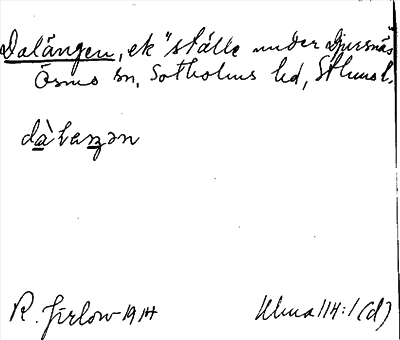 Dalängen, ek "ställe under Djursnäs"
Ösmo sn, Sotholms hd, Sthms l.
dàlaŋən
R. Jirlow 1914
Ulma 114:1 (d)